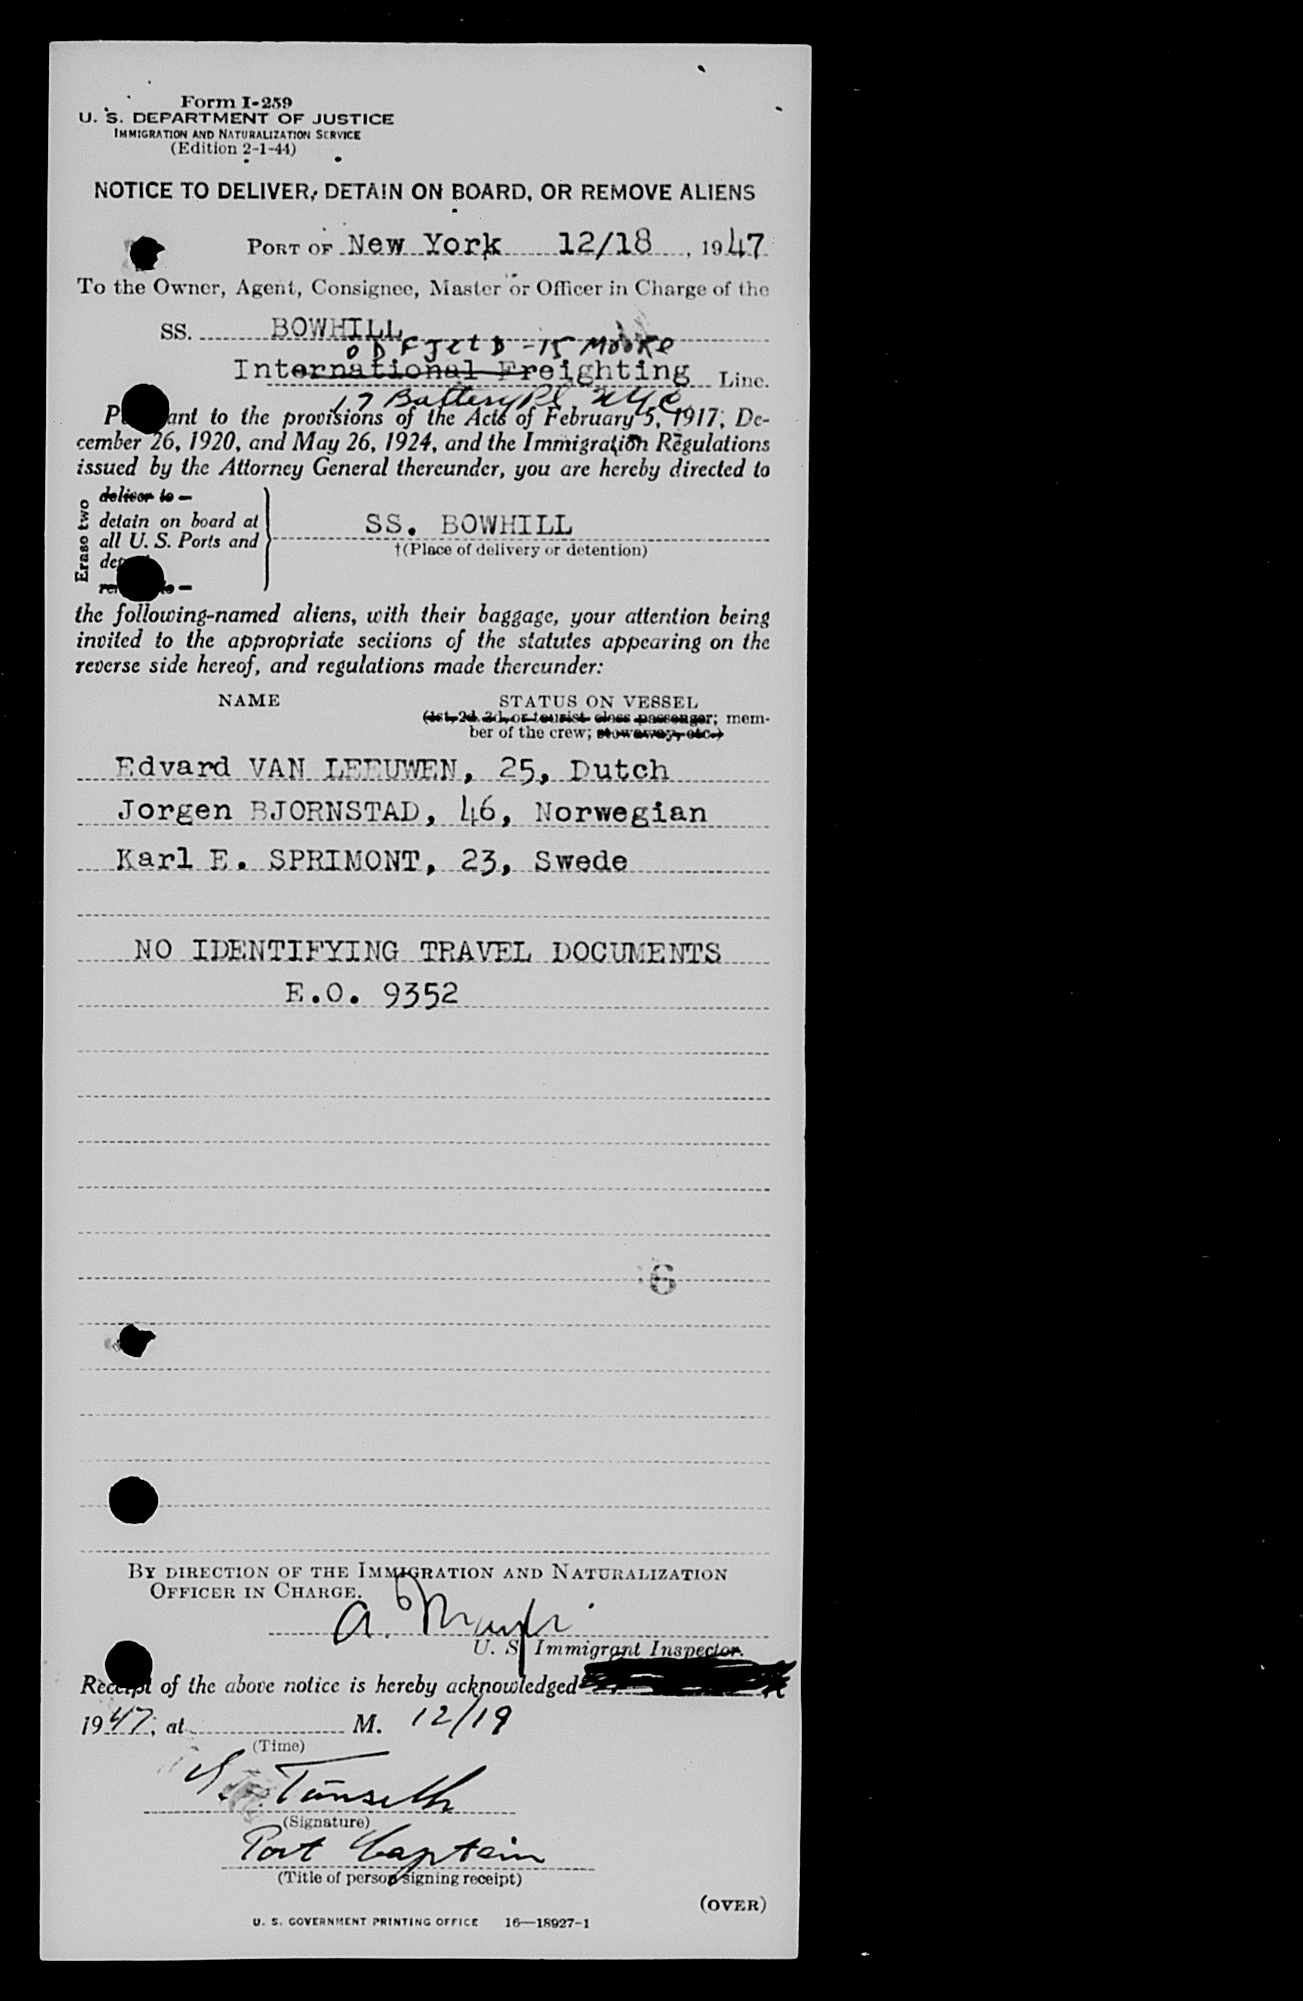 Form I-259
U. S. DEPARTMENT OF JUSTICE
IMMIGRATION AND NATURALIZATION SERVICE
(Edition 2-1-44)
NOTICE TO DELIVER, DETAIN ON BOARD, OR REMOVE ALIENS
PORT OF New York 12/18, 1947
To the Owner, Agent, Consignee, Master or Officer in Charge of the
SS. BOWHILL
International Freighting Line.
17 Battery Pl NYC
Pursuant to the provisions of the Acts of February 5, 1917; De-
cember 26, 1920, and May 26, 1924, and the Immigration Regulations
issued by the Attorney General thereunder, you are hereby directed to
Erase two
deliver to —
detain on board at
all U. S. Ports and
SS. BOWHILL
†(Place of delivery or detention)
the following-named aliens, with their baggage, your attention being
invited to the appropriate sections of the statutes appearing on the
reverse side hereof, and regulations made thereunder:
NAME STATUS ON VESSEL
(1st, 2d, 3d, or tourist class passenger; mem-
ber of the crew; stowaway, etc.)
Edvard VAN LEEUWEN, 25, Dutch
Jorgen BJORNSTAD, 46, Norwegian
Karl E. SPRIMONT, 23, Swede
NO IDENTIFYING TRAVEL DOCUMENTS
E.O. 9352
6
BY DIRECTION OF THE IMMIGRATION AND NATURALIZATION
OFFICER IN CHARGE.
A.
U. S. Immigrant Inspector.
Receipt of the above notice is hereby acknowledged
1947, at M. 12/19
(Time)
(Signature)
Port Captain
(Title of person signing receipt)
(OVER)
U. S. GOVERNMENT PRINTING OFFICE 16—18927-1